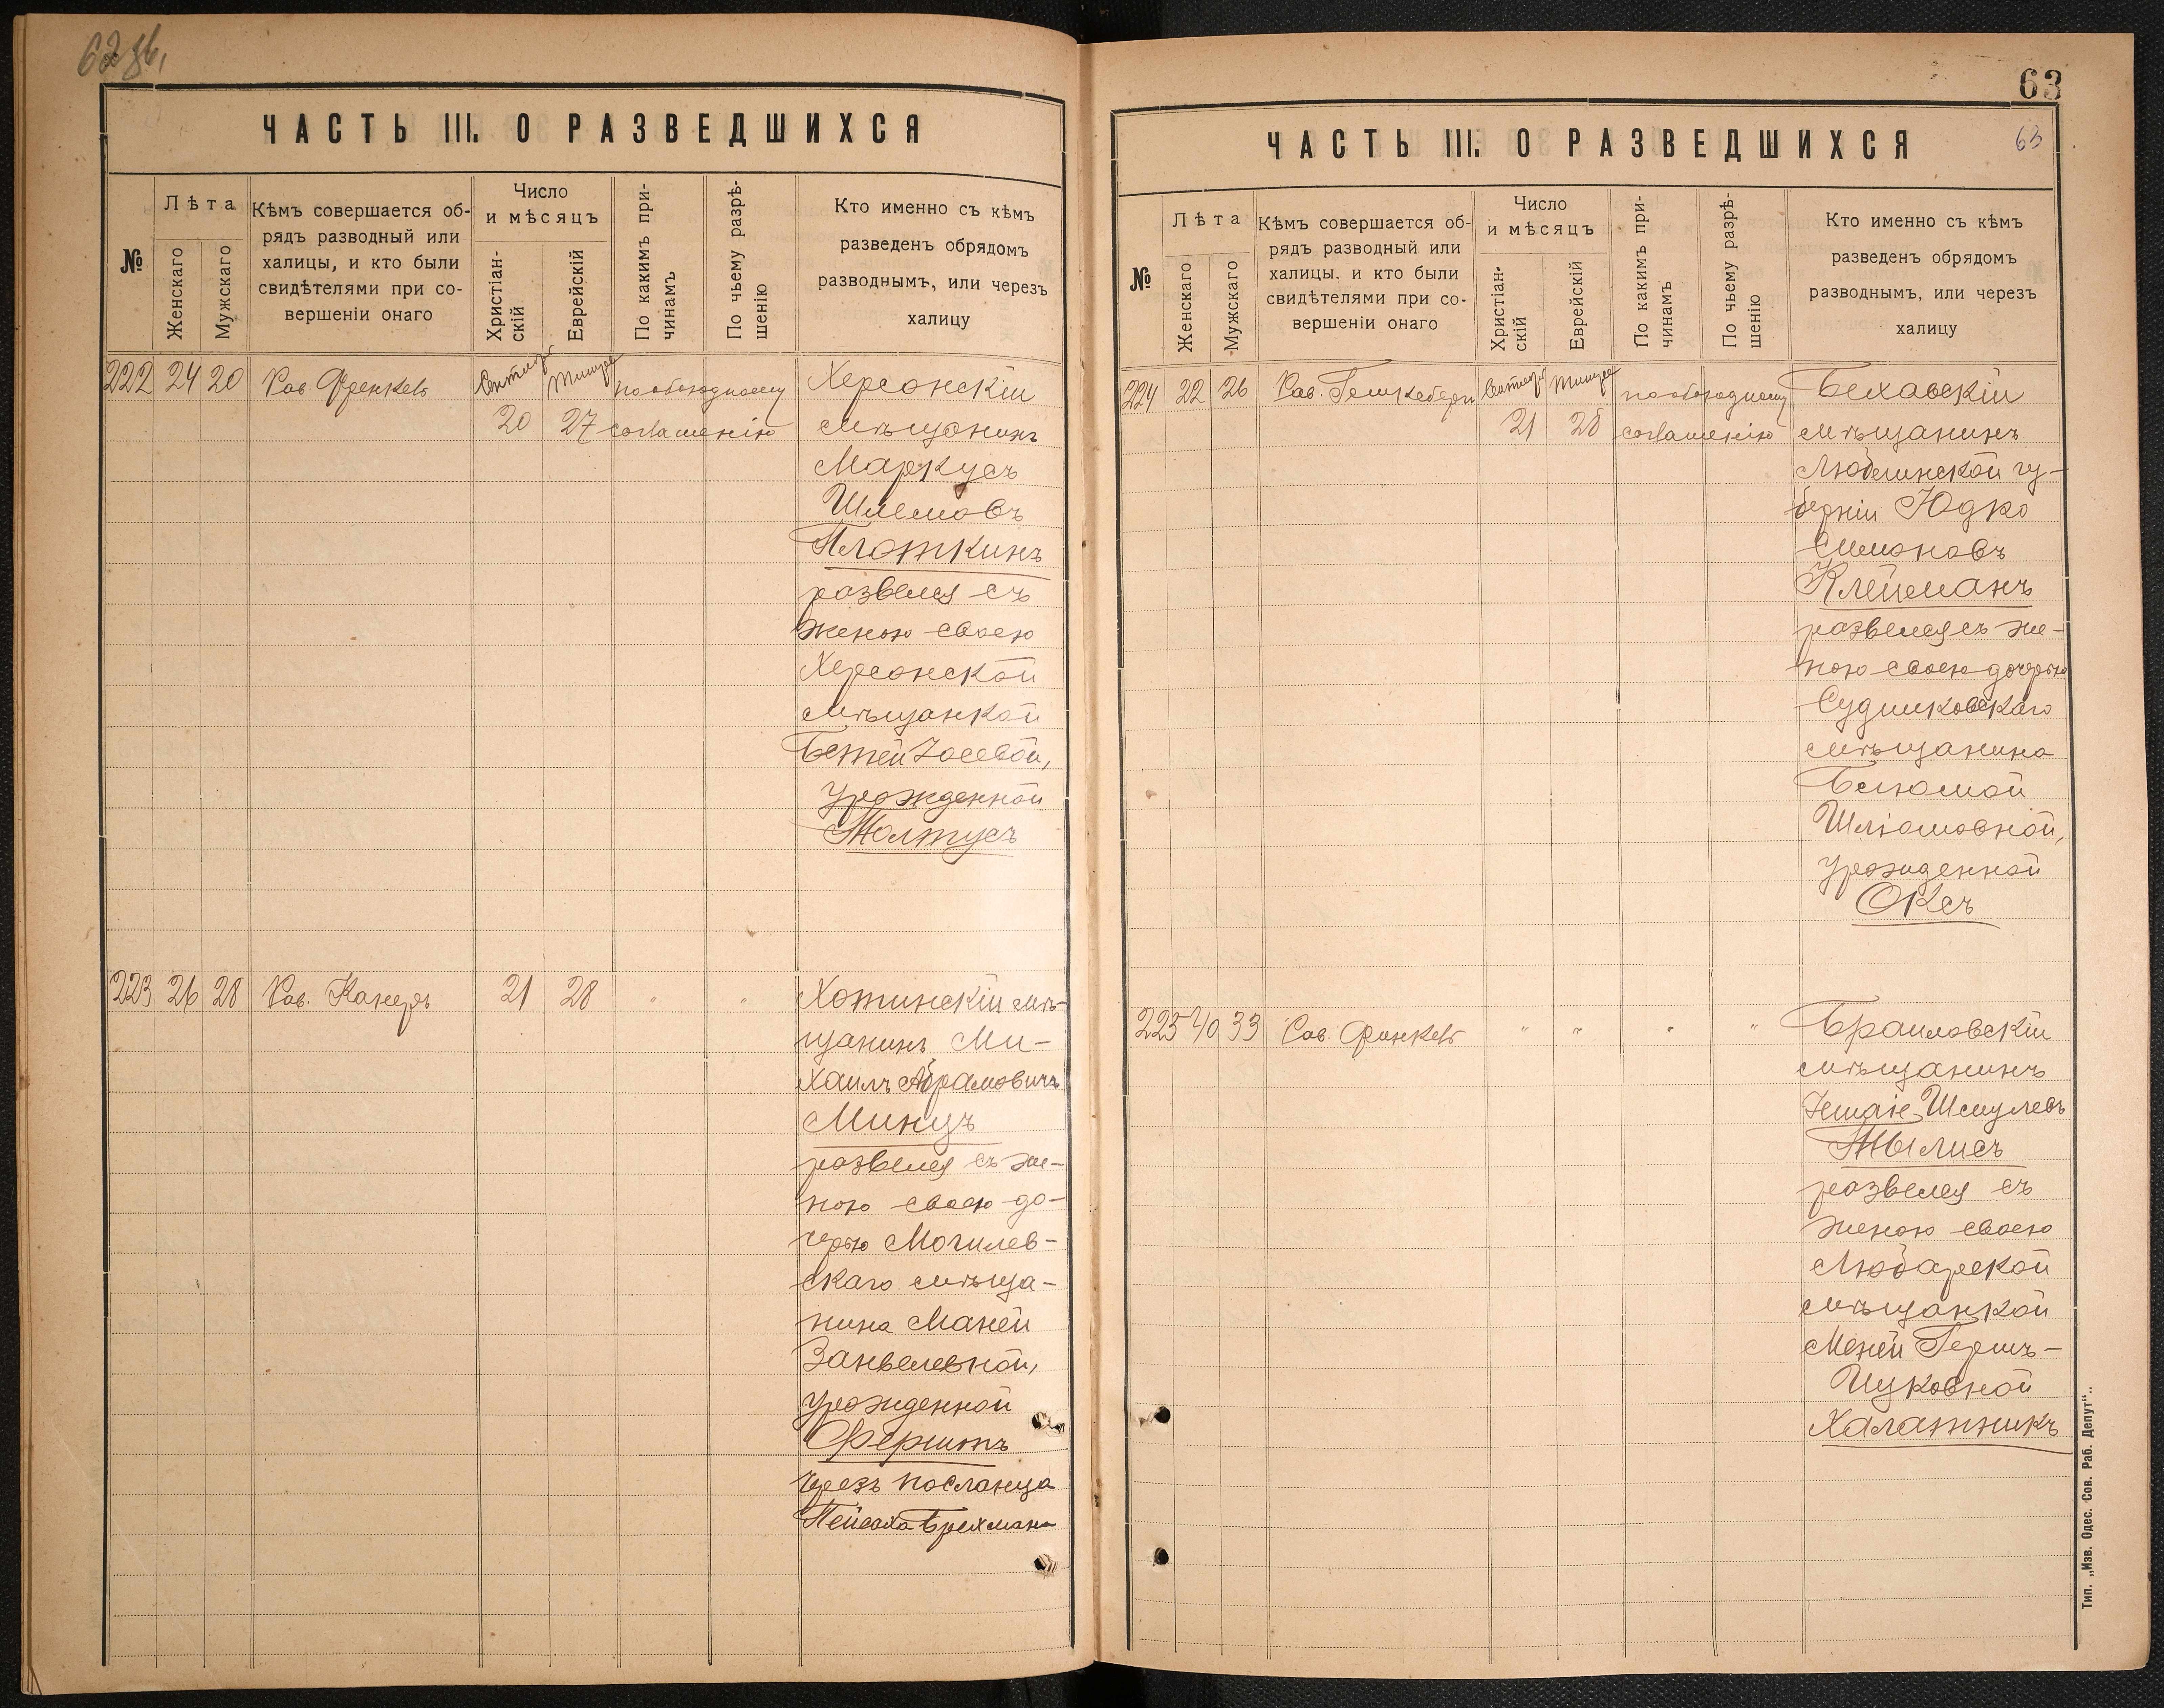 62 об.
ЧАСТЬ III. О РАЗВЕДШИХСЯ
№
Лѣта
Женскаго
Мужскаго
Кѣмъ совершается об-
рядъ разводный или
халицы, и кто были
свидѣтелями при со-
вершеніи онаго
Число
и мѣсяцъ
Христіан-
скій
Еврейскій
По какимъ при-
чинамъ
По чьему разрѣ-
шенію
Кто именно съ кѣмъ
разведенъ обрядомъ
разводнымъ, или черезъ
халицу
222 24 20 Рав Френкель Сентябр Тишре по обоюдному Херсонскій
20 27 соглашенію мѣщанинъ
Маркусъ
Шлемовъ
Плоткинъ
развелся съ
женою своею
Херсонской
мѣщанкой
Бетей Іосевой,
урожденной
Жолтусъ
223 26 28 Рав. Канеръ 21 28 " " Хотинскій мѣ-
щанинъ Ми-
хаилъ Абрамовичъ
Минцъ
развелся съ же-
ною своею до-
черью Могилев-
скаго мѣща-
нина Маней
Занвелевной,
урожденной
Ферштъ
черезъ посланца
Пейсаха Брехмана
63
ЧАСТЬ III. О РАЗВЕДШИХСЯ
63
№
Лѣта
Женскаго
Мужскаго
Кѣмъ совершается об-
рядъ разводный или
халицы, и кто были
свидѣтелями при со-
вершеніи онаго
Число
и мѣсяцъ
Христіан-
скій
Еврейскій
По какимъ при-
чинамъ
По чьему разрѣ-
шенію
Кто именно съ кѣмъ
разведенъ обрядомъ
разводнымъ, или черезъ
халицу
224 22 26 Рав. Сентябр Тишре по обоюдному Бехавскій
21 28 соглашенію мѣщанинъ
Люблинской гу-
берніи Юдко
Симоновъ
Клейманъ
развелся съ же-
ною своею дочерью
Судилковскаго
мѣщанина
Бсюмой
Шліомовной,
урожденной
Оксъ
225 40 33 Рав. Финкель " " " " Браиловскій
мѣщанинъ
Іешаіе Шмулевъ
развелся съ
женою своею
Любарской
мѣщанкой
Меней Гершъ-
Ицковной
Халатникъ
Тип. „Изв. Одес. Сов. Раб. Депут“.